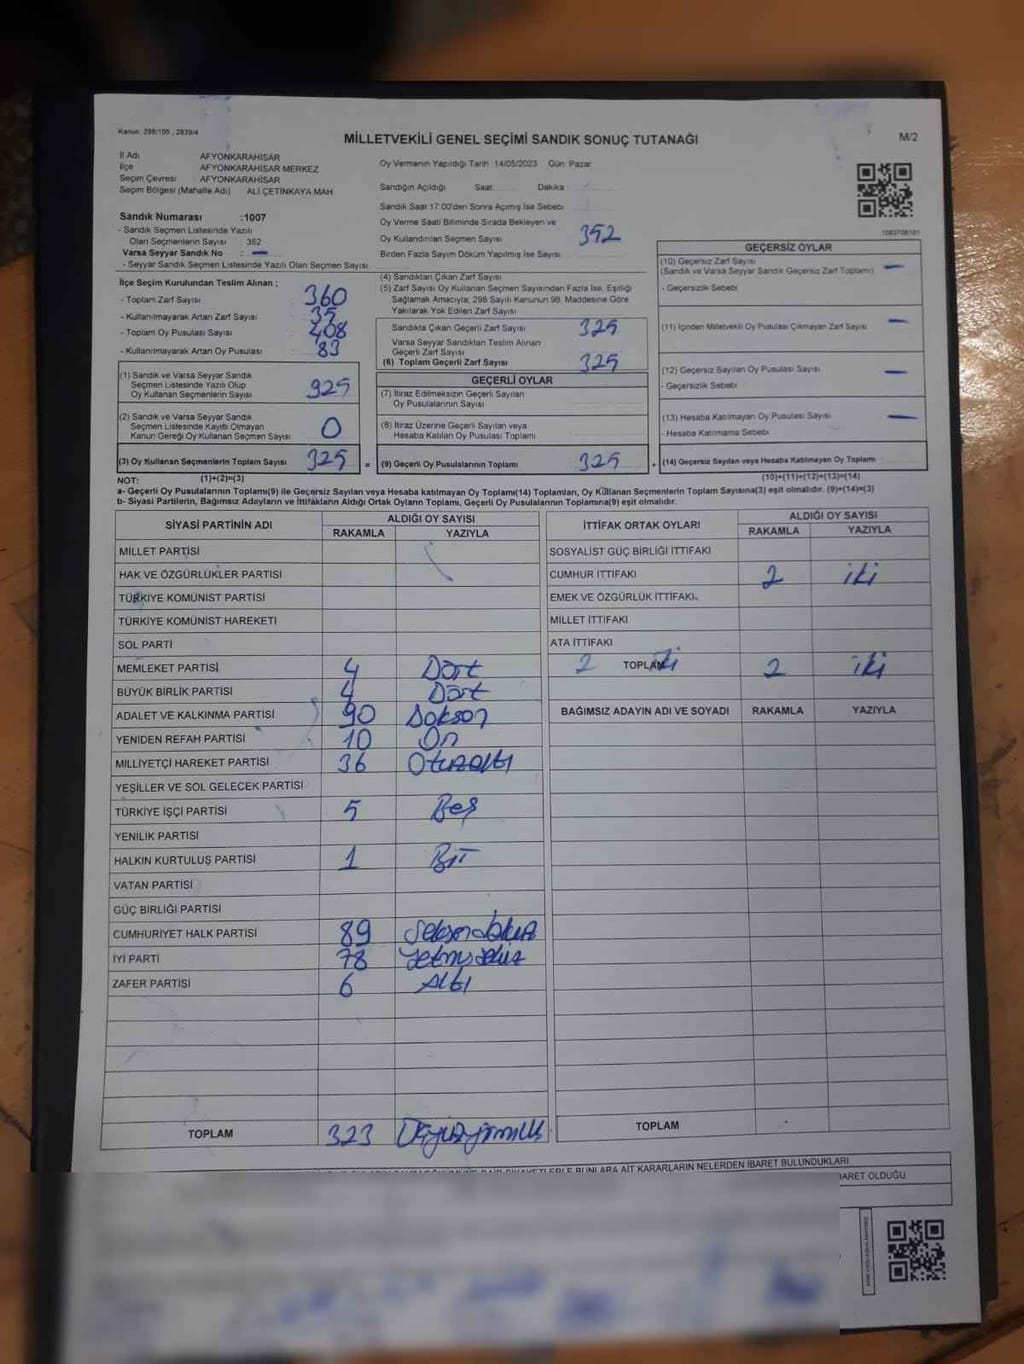 Kanun: 298/105 , 2839/4
MİLLETVEKİLİ GENEL SEÇİMİ SANDIK SONUÇ TUTANAĞI
M/2
İl Adı AFYONKARAHİSAR
İlçe AFYONKARAHİSAR MERKEZ
Seçim Çevresi AFYONKARAHİSAR
Seçim Bölgesi (Mahalle Adı) ALİ ÇETİNKAYA MAH
Oy Vermenin Yapıldığı Tarih 14/05/2023 Gün Pazar
Sandığın Açıldığı Saat Dakika
Sandık Saat 17:00'den Sonra Açımış İse Sebebi
Oy Verme Saati Bitiminde Sırada Bekleyen ve
Oy Kullandırılan Seçmen Sayısı 352
Birden Fazla Sayım Döküm Yapılmış İse Sayısı
Sandık Numarası :1007
- Sandık Seçmen Listesinde Yazılı
Olan Seçmenlerin Sayısı : 352
Varsa Seyyar Sandık No : -
- Seyyar Sandık Seçmen Listesinde Yazılı Olan Seçmen Sayısı
İlçe Seçim Kurulundan Teslim Alınan ;
- Toplam Zarf Sayısı 360
- Kullanılmayarak Artan Zarf Sayısı 35
- Toplam Oy Pusulası Sayısı 408
- Kullanılmayarak Artan Oy Pusulası 83
(1) Sandık ve Varsa Seyyar Sandık
Seçmen Listesinde Yazılı Olup
Oy Kullanan Seçmenlerin Sayısı 325
(2) Sandık ve Varsa Seyyar Sandık
Seçmen Listesinde Kayıtlı Olmayan
Kanun Gereği Oy Kullanan Seçmen Sayısı 0
(3) Oy Kullanan Seçmenlerin Toplam Sayısı 325 =
(4) Sandıktan Çıkan Zarf Sayısı
(5) Zarf Sayısı Oy Kullanan Seçmen Sayısından Fazla İse, Eşitliği
Sağlamak Amacıyla, 298 Sayılı Kanunun 98. Maddesine Göre
Yakılarak Yok Edilen Zarf Sayısı
Sandıkta Çıkan Geçerli Zarf Sayısı 325
Varsa Seyyar Sandıktan Teslim Alınan
Geçerli Zarf Sayısı
(6) Toplam Geçerli Zarf Sayısı 325
GEÇERLİ OYLAR
(7) İtiraz Edilmeksizin Geçerli Sayılan
Oy Pusulalarının Sayısı
(8) İtiraz Üzerine Geçerli Sayılan veya
Hesaba Katılan Oy Pusulası Toplamı
(9) Geçerli Oy Pusulalarının Toplamı 325 +
GEÇERSİZ OYLAR
(10) Geçersiz Zarf Sayısı -
(Sandık ve Varsa Seyyar Sandık Geçersiz Zarf Toplamı)
- Geçersizlik Sebebi
(11) İçinden Milletvekili Oy Pusulası Çıkmayan Zarf Sayısı -
(12) Geçersiz Sayılan Oy Pusulası Sayısı -
- Geçersizlik Sebebi
(13) Hesaba Katılmayan Oy Pusulası Sayısı -
- Hesaba Katılmama Sebebi
(14) Geçersiz Sayılan veya Hesaba Katılmayan Oy Toplamı
NOT: (1)+(2)=(3) (10)+(11)+(12)+(13)=(14)
a- Geçerli Oy Pusulalarının Toplamı(9) ile Geçersiz Sayılan veya Hesaba katılmayan Oy Toplamı(14) Toplamları, Oy Kullanan Seçmenlerin Toplam Sayısına(3) eşit olmalıdır. (9)+(14)=(3)
b- Siyasi Partilerin, Bağımsız Adayların ve İttifakların Aldığı Ortak Oyların Toplamı, Geçerli Oy Pusulalarının Toplamına(9) eşit olmalıdır.
SİYASİ PARTİNİN ADI ALDIĞI OY SAYISI
RAKAMLA YAZIYLA
MİLLET PARTİSİ
HAK VE ÖZGÜRLÜKLER PARTİSİ
TÜRKİYE KOMÜNİST PARTİSİ
TÜRKİYE KOMÜNİST HAREKETİ
SOL PARTİ
MEMLEKET PARTİSİ 4 Dört
BÜYÜK BİRLİK PARTİSİ 4 Dört
ADALET VE KALKINMA PARTİSİ 90 Doksan
YENİDEN REFAH PARTİSİ 10 On
MİLLİYETÇİ HAREKET PARTİSİ 36 Otuzaltı
YEŞİLLER VE SOL GELECEK PARTİSİ
TÜRKİYE İŞÇİ PARTİSİ 5 Beş
YENİLİK PARTİSİ
HALKIN KURTULUŞ PARTİSİ 1 Bir
VATAN PARTİSİ
GÜÇ BİRLİĞİ PARTİSİ
CUMHURİYET HALK PARTİSİ 89 Seksendokuz
İYİ PARTİ 78 Yetmişsekiz
ZAFER PARTİSİ 6 Altı
TOPLAM 323 Üçyüzyirmiüç
İTTİFAK ORTAK OYLARI ALDIĞI OY SAYISI
RAKAMLA YAZIYLA
SOSYALİST GÜÇ BİRLİĞİ İTTİFAKI
CUMHUR İTTİFAKI 2 iki
EMEK VE ÖZGÜRLÜK İTTİFAKI
MİLLET İTTİFAKI
ATA İTTİFAKI
2 TOPLAM iki 2 iki
BAĞIMSIZ ADAYIN ADI VE SOYADI RAKAMLA YAZIYLA
TOPLAM
BUNLARA AİT KARARLARIN NELERDEN İBARET BULUNDUKLARI
İBARET OLDUĞU